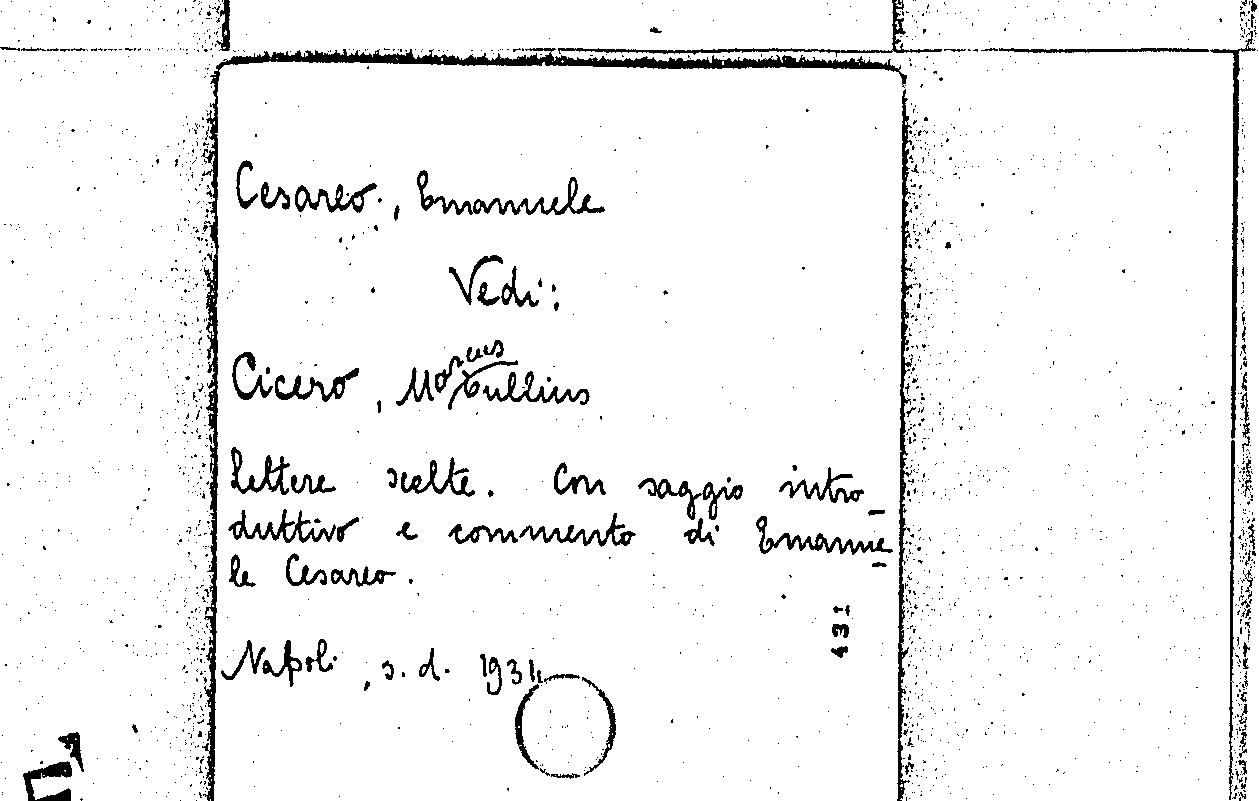 Cesareo, Emanuele
Vedi:
Cicero, Marcus Tullius
Lettere scelte. Con saggio intro_
duttivo e commento di Emanue_
le Cesareo.
431
Napoli, s. d. 1934